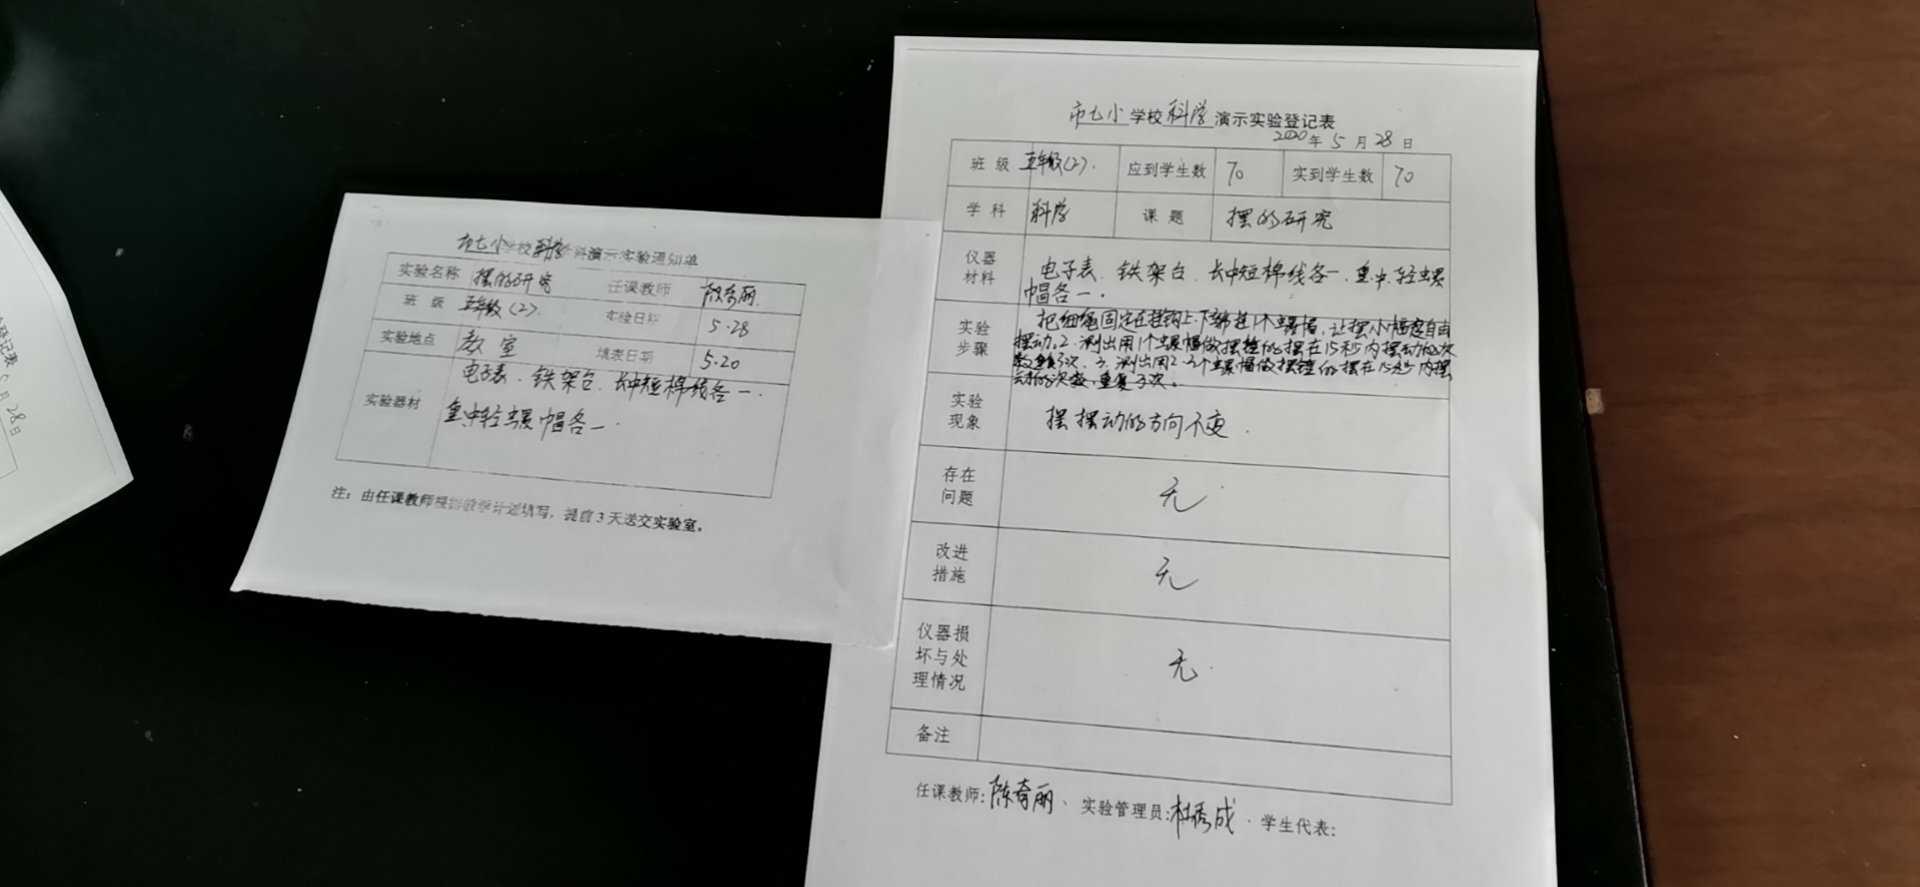 市七小学校科学学科演示实验通知单
实验名称 摆的研究 任课教师 陈奇丽
班级 五年级(2). 实验日期 5.28
实验地点 教室 填表日期 5.20
实验器材 电子表、铁架台、长中短棉线各一.
重中轻螺帽各一.
注:由任课教师根据教学计划填写,提前3天送交实验室。
市七小学校科学演示实验登记表
2020年5月28日
班级 五年级(2). 应到学生数 70 实到学生数 70
学科 科学 课题 摆的研究
仪器材料 电子表、铁架台、长中短棉线各一.重中、轻螺
帽各一.
实验步骤 把细绳固定在挂钩上.下端挂1个螺帽,让摆小幅度自由
摆动。2.测出用1个螺帽做摆锤的摆在15秒内摆动的次
数,重复3次、3.测出用2、3个螺帽做摆锤的摆在15秒内摆
动的次数,重复3次。
实验现象 摆摆动的方向不变.
存在问题 无.
改进措施 无
仪器损坏与处理情况 无.
备注
任课教师:陈奇丽、实验管理员:杜秀成.学生代表:
登记表
月28日